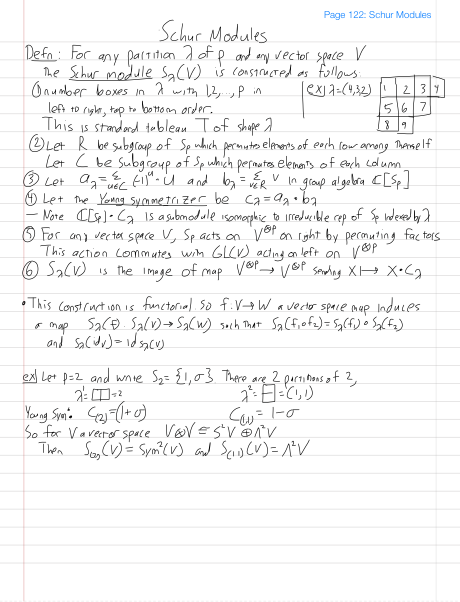 Page 122: Schur Modules
Schur Modules
Defn: For any partition λ of p and any vector space V
the Schur module S_λ(V) is constructed as follows:
① number boxes in λ with 1,2,..., p in
left to right, top to bottom order.
This is standard tableau T of shape λ
ex) λ=(4,3,2)
1 2 3 4
5 6 7
8 9
② Let R be subgroup of S_p which permutes elements of each row among themself
Let C be subgroup of S_p which permutes elements of each column
③ Let a_λ = Σ_{u∈C} (-1)^u · u and b_λ = Σ_{v∈R} v in group algebra ℂ[S_p]
④ Let the Young Symmetrizer be c_λ = a_λ · b_λ
— Note ℂ[S_p] · c_λ is a submodule isomorphic to irreducible rep of S_p indexed by λ
⑤ For any vector space V, S_p acts on V^{⊗p} on right by permuting factors
This action commutes with GL(V) acting on left on V^{⊗p}
⑥ S_λ(V) is the image of map V^{⊗p} → V^{⊗p} sending x ↦ x · c_λ
• This construction is functorial so f: V→W a vector space map induces
a map S_λ(f): S_λ(V) → S_λ(W) such that S_λ(f_1∘f_2) = S_λ(f_1) ∘ S_λ(f_2)
and S_λ(id_V) = id_{S_λ(V)}
ex) Let p=2 and write S_2 = {1, σ}. There are 2 partitions of 2,
λ^1 = □□ = 2 λ^2 = = (1,1)
Young Sym: C_{(2)} = (1+σ) C_{(1,1)} = 1-σ
So for V a vector space V⊗V ≅ S^2 V ⊕ Λ^2 V
Then S_{(2)}(V) = Sym^2(V) and S_{(1,1)}(V) = Λ^2 V